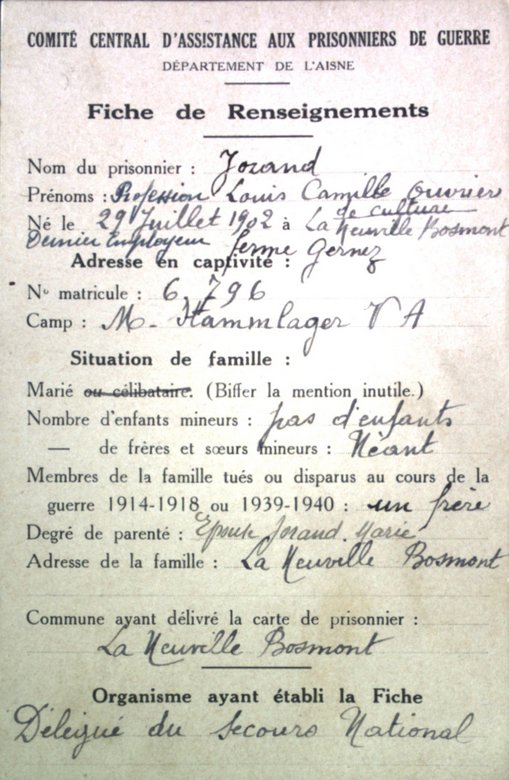 COMITÉ CENTRAL D'ASSISTANCE AUX PRISONNIERS DE GUERRE
DÉPARTEMENT DE L'AISNE
Fiche de Renseignements
Nom du prisonnier : Jorand
Prénoms : Profession Louis Camille Ouvrier
de culture
Né le 29 Juillet 1902 à La Neuville Bosmont
Dernier Employeur ferme Gernez
Adresse en captivité :
N° matricule : 6.796
Camp : M- Stammlager V A
Situation de famille :
Marié ou célibataire. (Biffer la mention inutile.)
Nombre d'enfants mineurs : pas d'enfants
— de frères et sœurs mineurs : Néant
Membres de la famille tués ou disparus au cours de la
guerre 1914-1918 ou 1939-1940 : un frère
Degré de parenté : Epouse Jorand Marie
Adresse de la famille : La Neuville Bosmont
Commune ayant délivré la carte de prisonnier :
La Neuville Bosmont
Organisme ayant établi la Fiche
Délégué du Secours National